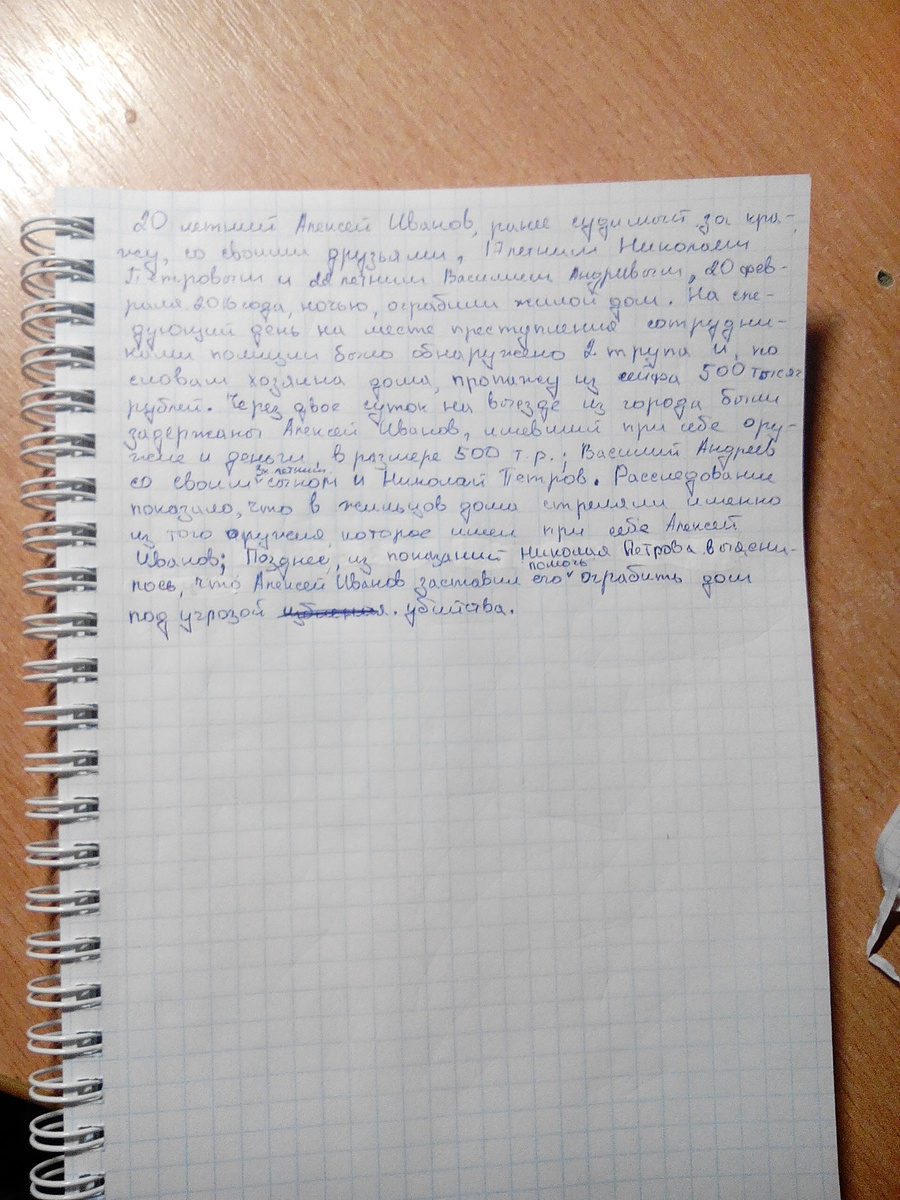 20 летний Алексей Иванов, ранее судимый за кра-
жу, со своими друзьями, 17летним Николаем
Петровым и 22 летним Василием Андреевым, 20 фев-
раля 2016 года, ночью, ограбили жилой дом. На сле-
дующий день на месте преступления сотрудни-
ками полиции было обнаружено 2 трупа и, по
словам хозяина дома, пропажу из сейфа 500 тысяч
рублей. Через двое суток на выезде из города были
задержаны Алексей Иванов, имевший при себе ору-
жие и деньги, в размере 500 т.р.; Василий Андреев
со своим 3х летним сыном и Николай Петров. Расследование
показало, что в жильцов дома стреляли именно
из того оружия которое имел при себе Алексей
Иванов; Позднее, из показаний Николая Петрова выясни-
лось, что Алексей Иванов заставил его помочь ограбить дом
под угрозой убийства.